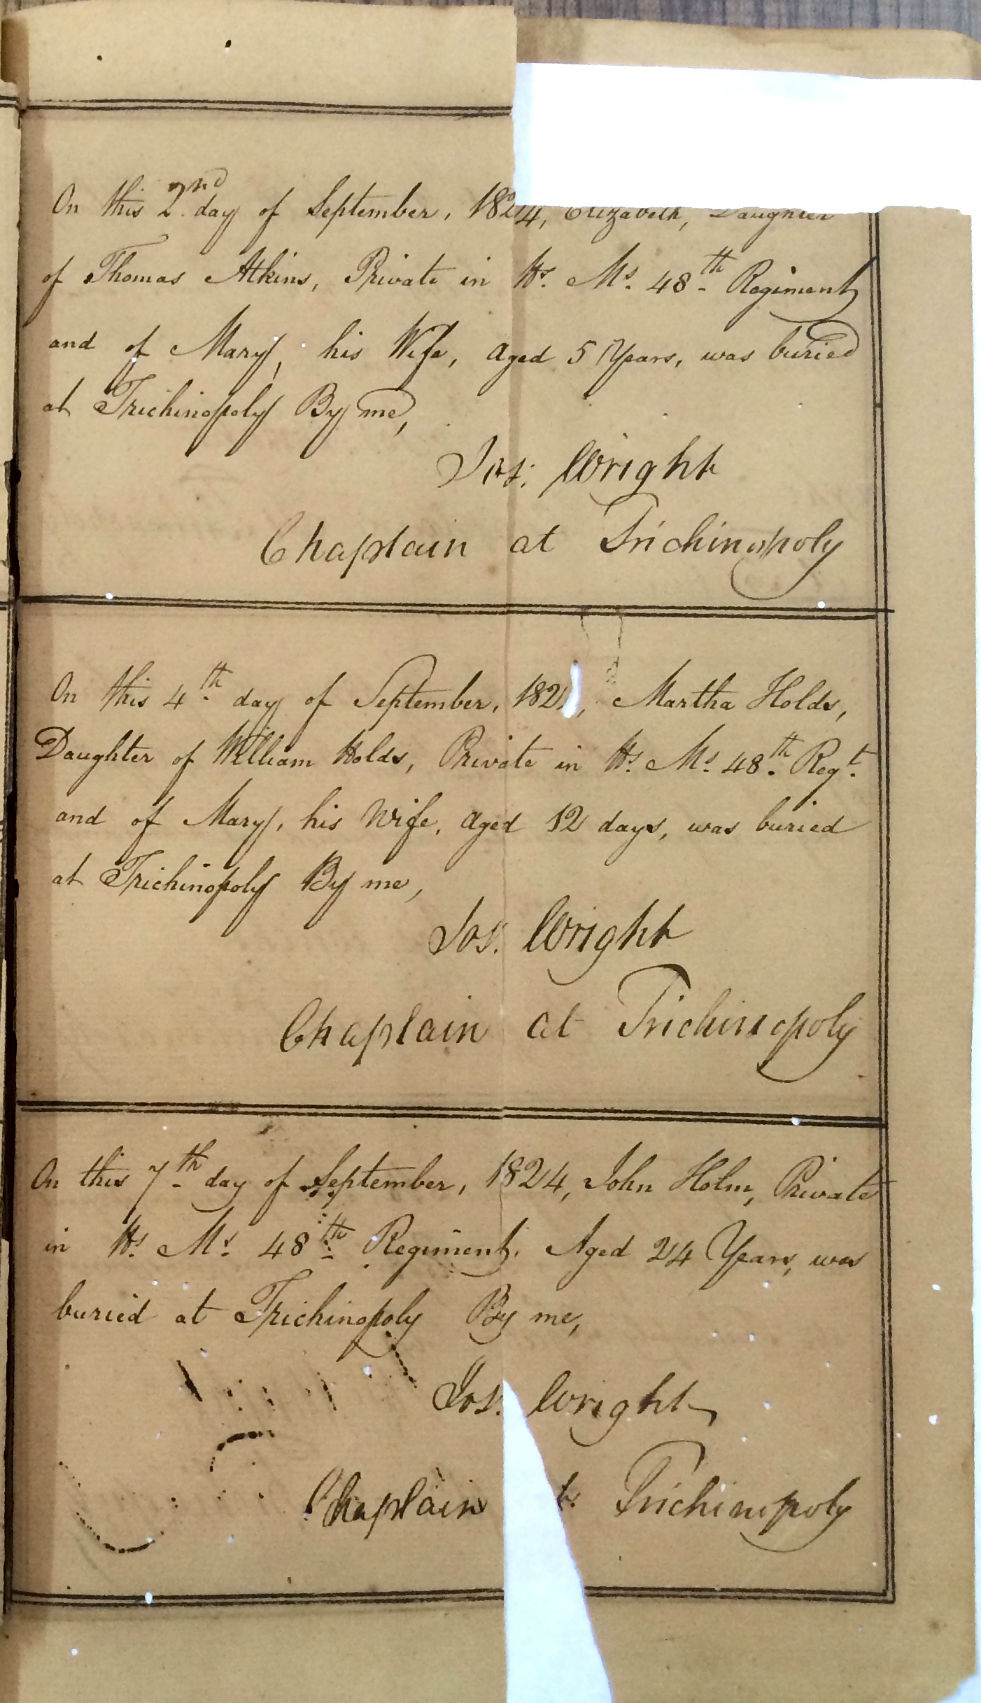 On this 2nd day of September, 1824, Elizabeth, Daughter
of Thomas Atkins, Private in Hs. Ms. 48th Regiment
and of Mary, his Wife, aged 5 Years, was buried
at Trichinopoly By me,
Jos: Wright
Chaplain at Trichinopoly
On this 4th day of September, 182 , Martha Holds,
Daughter of William Holds, Private in Hs. Ms. 48th Regt.
and of Mary, his Wife, aged 12 days, was buried
at Trichinopoly By me,
Jos. Wright
Chaplain at Trichinopoly
On this 7th day of September, 1824, John Holm, Private
in Hs. Ms. 48th Regiment. Aged 24 Years, was
buried at Trichinopoly By me,
Jos. Wright
Chaplain Trichinopoly